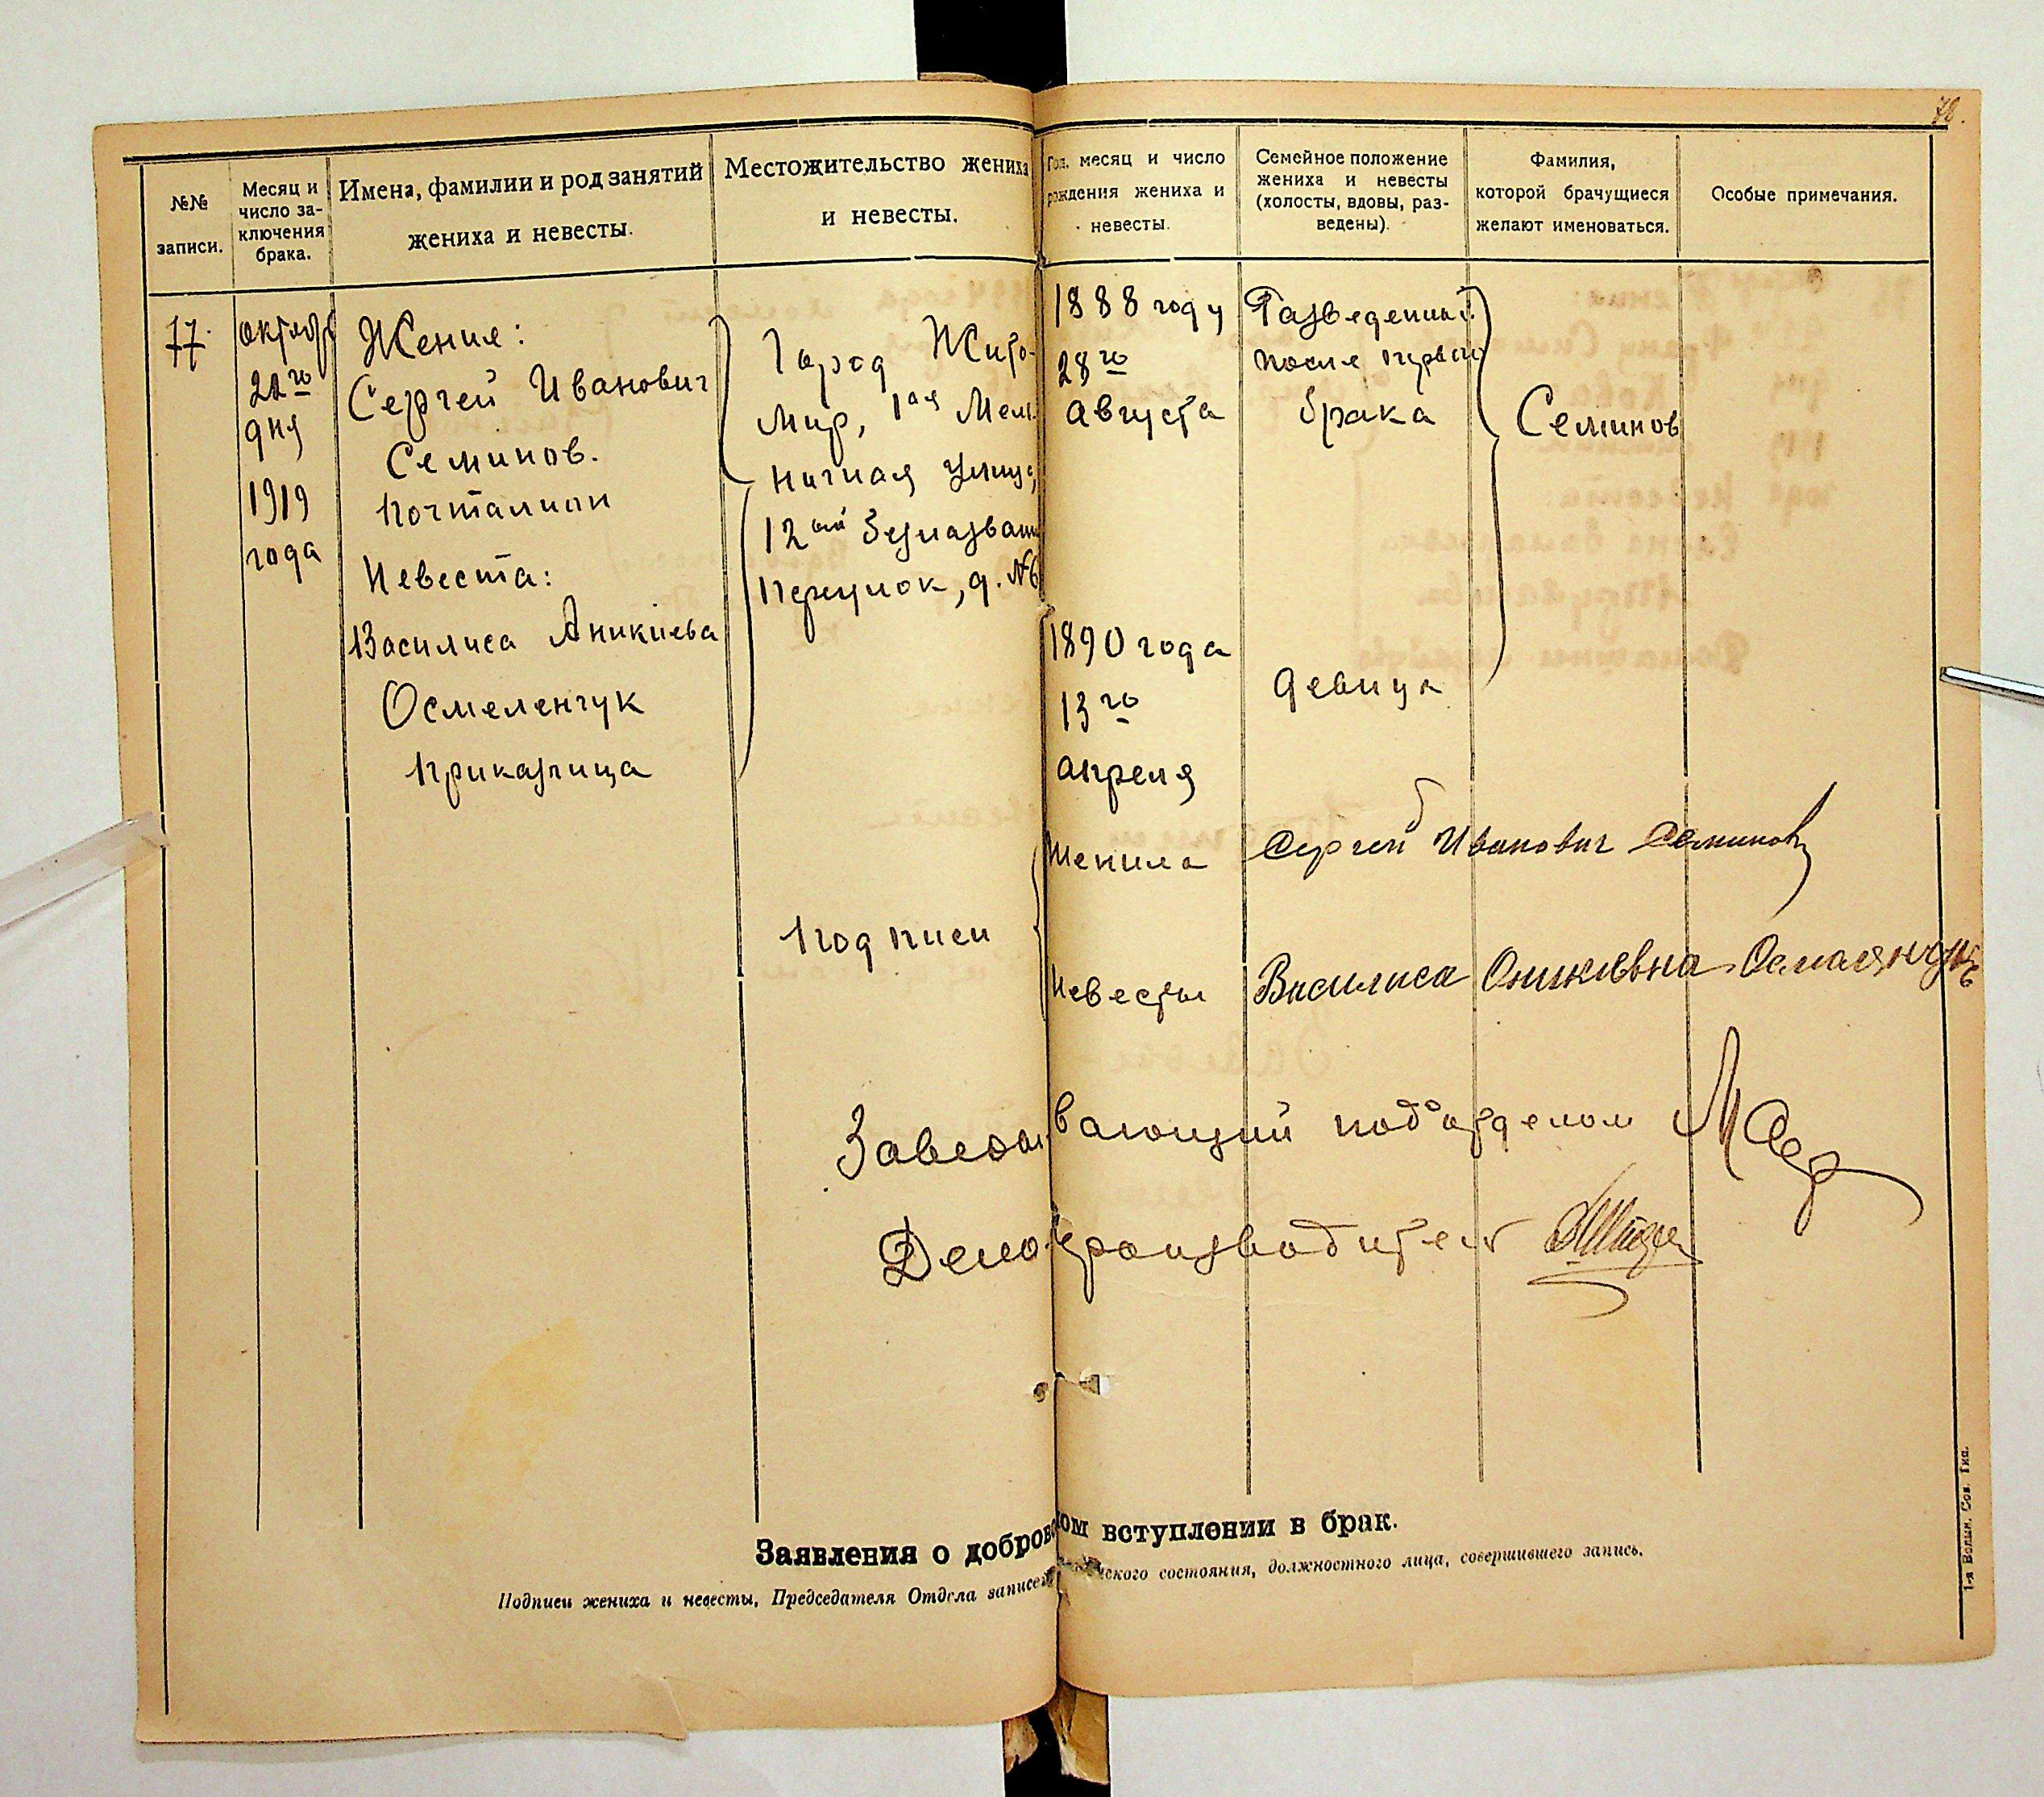 78.
№№ записи.
Месяц и число за-ключения брака.
Имена, фамилии и род занятий жениха и невесты.
Местожительство жениха и невесты.
Год, месяц и число рождения жениха и невесты.
Семейное положение жениха и невесты (холосты, вдовы, раз-ведены).
Фамилия, которой брачущиеся желают именоваться.
Особые примечания.
77.
октябр
22го
дня
1919
года
Жених:
Сергей Иванович
Семинов.
Почталион
Невеста:
Василиса Аникиева
Осмеленчук
Приказчица
Город Жито-
мир, 1ая Мель
ничная улица,
12ый Безназван
переулок, д. №6
1888 году
28го
Августа
1890 года
13го
апреля
Разведенный
после первого
брака
девица
Семинов
Подписи
Жениха Сергей Иванович Семинов
Невесты Василиса Оникиевна Осмалянчукъ
Заведывающий подотделом
Делопроизводитель
Заявления о доброво ом вступлении в брак.
Подписи жениха и невесты, Председателя Отдела записей ского состояния, должностного лица, совершившего запись.
1-я Волын. Сов. Тип.